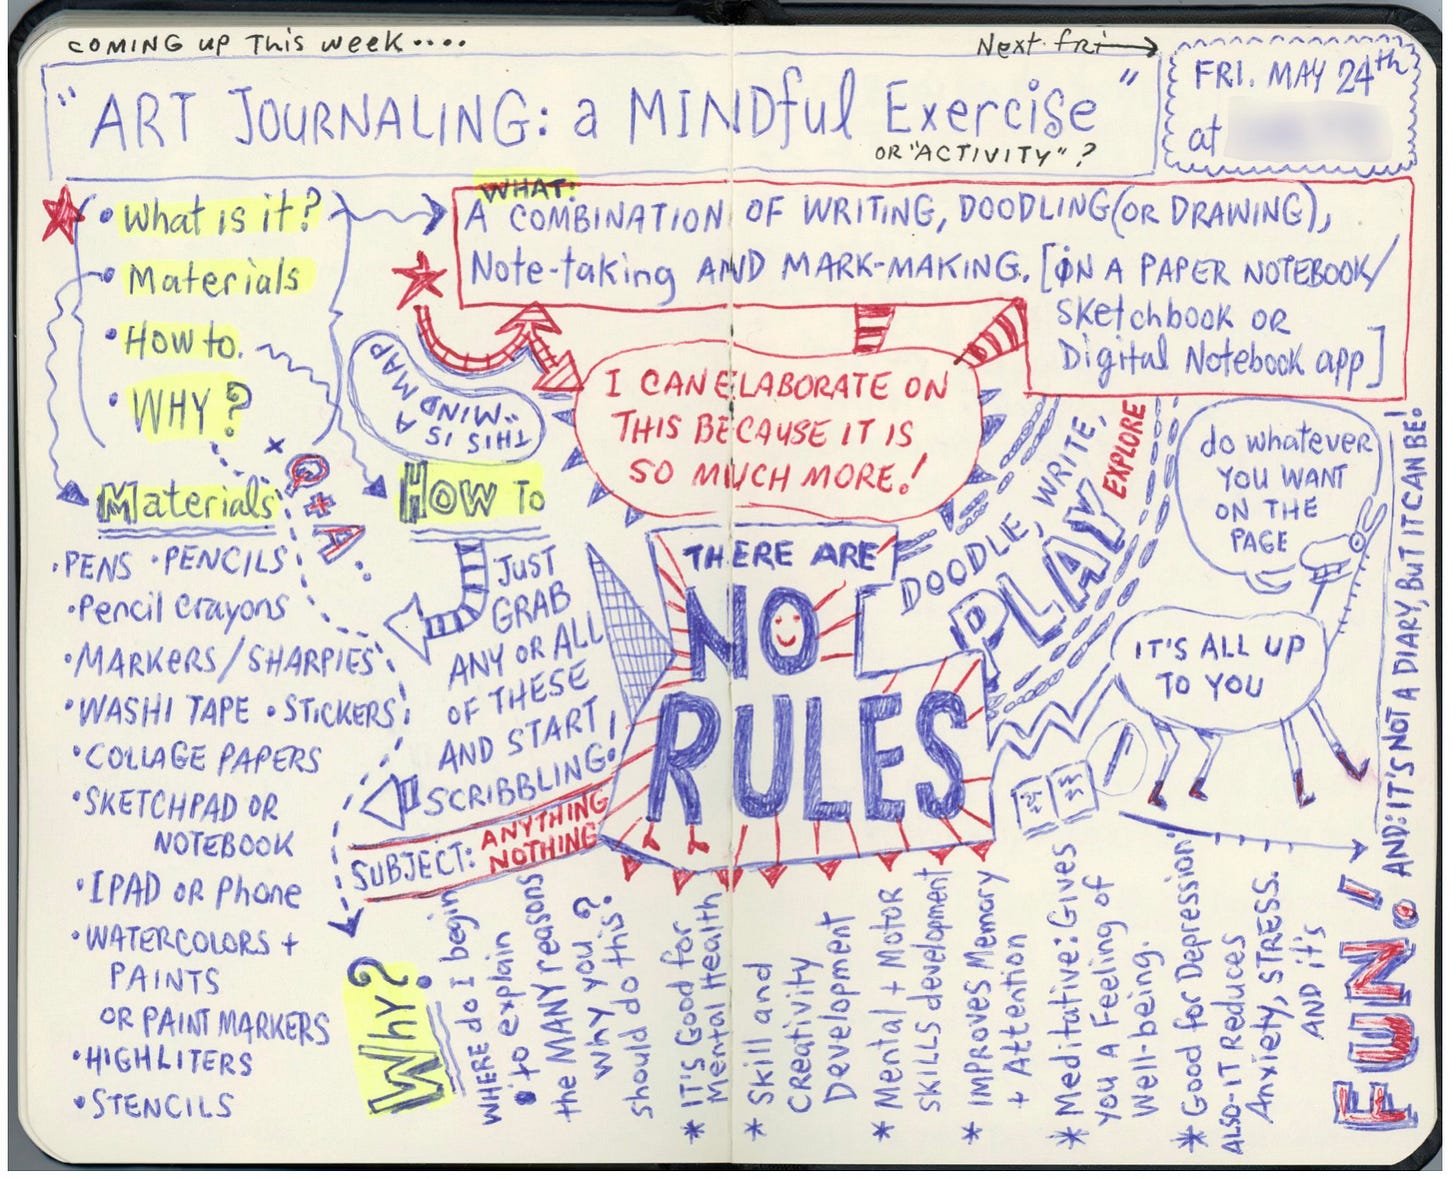 COMING UP THIS WEEK....
Next fri
FRI. MAY 24th
at
"ART JOURNALING: a MINDful Exercise"
OR "ACTIVITY"?
• What is it?
• Materials
• How to.
• WHY?
WHAT:
A COMBINATION OF WRITING, DOODLING (OR DRAWING),
Note-taking AND MARK-MAKING. [ON A PAPER NOTEBOOK/
Sketchbook OR
Digital Notebook app]
THIS IS A
"MIND MAP
I CAN ELABORATE ON
THIS BECAUSE IT IS
SO MUCH MORE!
Materials
• PENS • PENCILS
• Pencil Crayons
• MARKERS/SHARPIES
• WASHI TAPE • STICKERS
• COLLAGE PAPERS
• SKETCHPAD OR
NOTEBOOK
• IPAD OR Phone
• WATERCOLORS +
PAINTS
OR PAINT MARKERS
• HIGHLITERS
• STENCILS
HOW TO
JUST
GRAB
ANY OR ALL
OF THESE
AND START
SCRIBBLING!
SUBJECT: ANYTHING
NOTHING
THERE ARE
NO
RULES
DOODLE, WRITE,
PLAY
EXPLORE
do whatever
YOU WANT
ON THE
PAGE
IT'S ALL UP
TO YOU
Why?
WHERE do I begin
to explain
the MANY reasons
why you
should do this?
* IT'S Good for
Mental Health
* Skill and
Creativity
Development
* Mental + Motor
SKILLS development
* IMPROVES Memory
+ Attention
* Meditative: Gives
you A Feeling of
Well-being.
* Good for Depression
ALSO-IT REDUCES
Anxiety, STRESS.
AND it's
FUN!
AND: IT'S NOT A DIARY, BUT IT CAN BE!